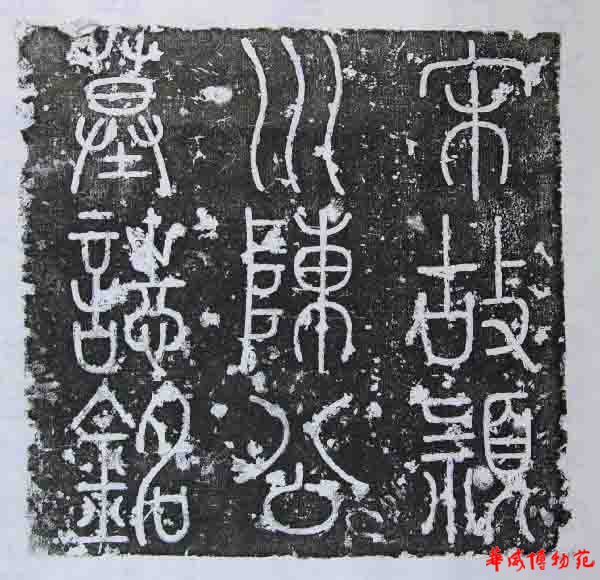 宋故潁
川陳公
墓誌銘
華威博物苑